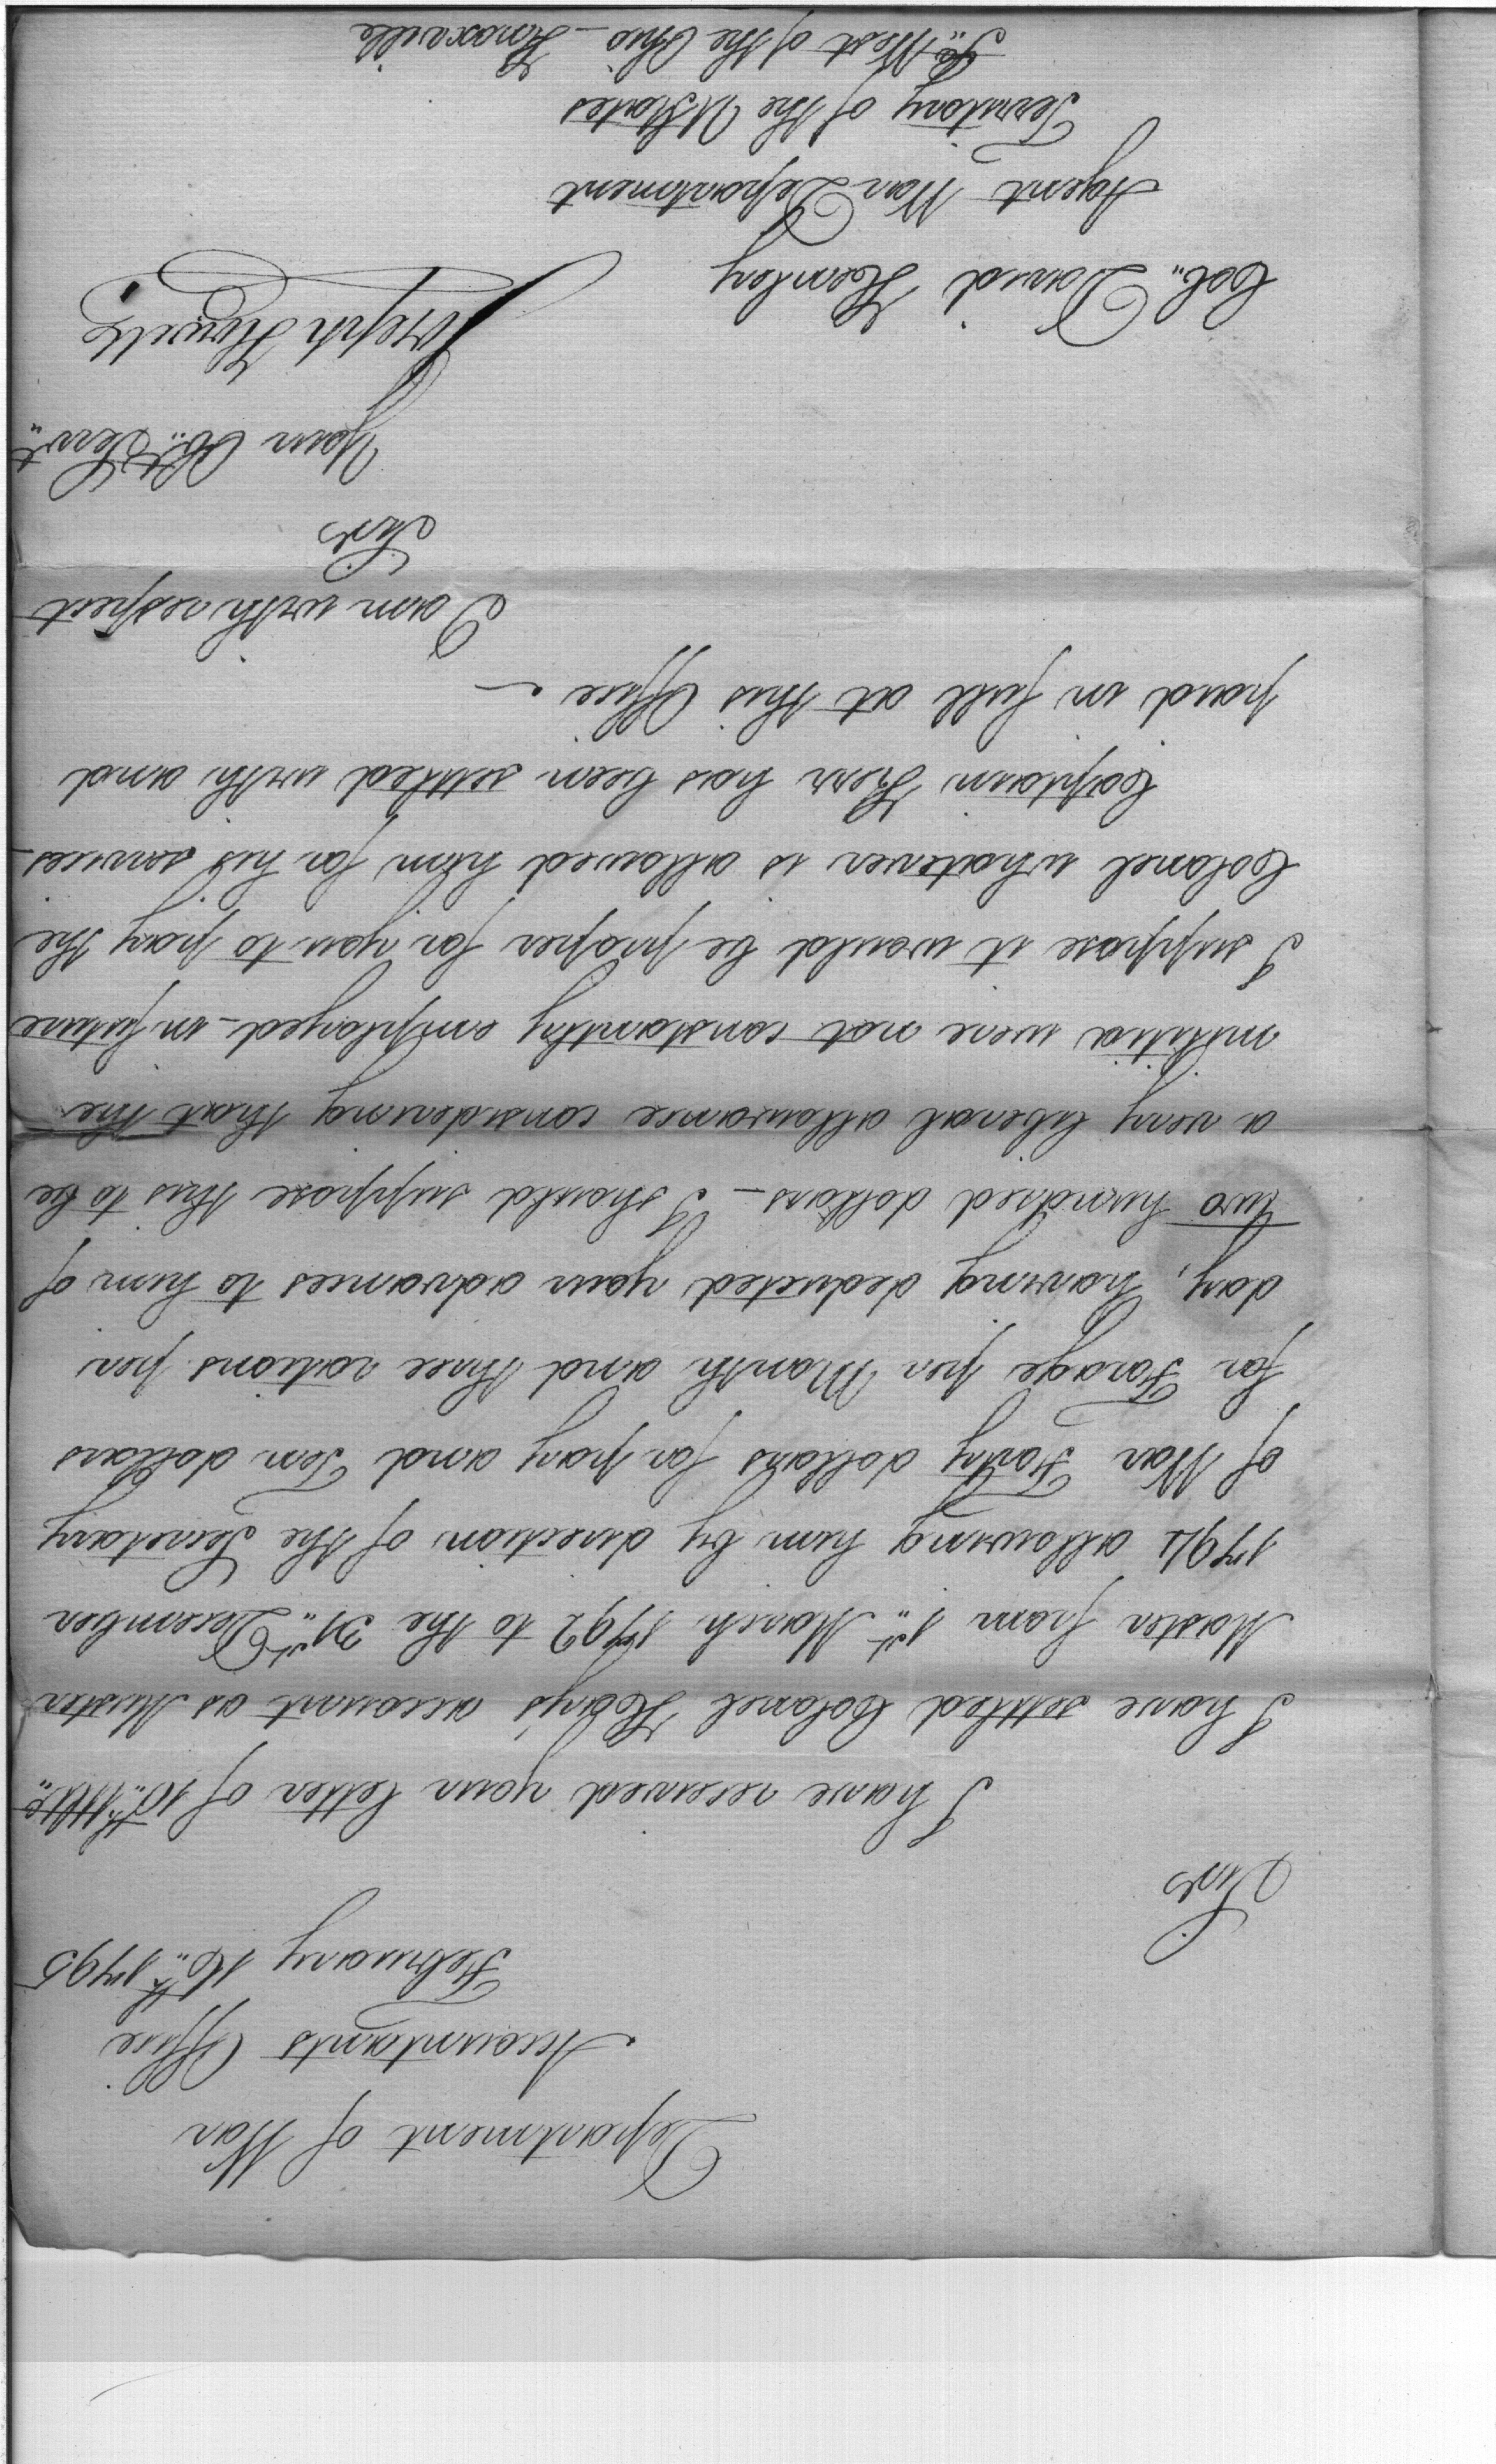 Department of War
Accountants Office
February 16th 1795
Sir
I have received your letter of 10th Ulto
I have settled Colonel Kearys account as Muster
Master from 1st March 1792 to the 31st December
1794 allowing him by direction of the Secretary
of War Forty dollars for pay and Ten dollars
for Forage per Month and three rations per
day, having deducted your advances to him of
two hundred dollars - I should suppose this to be
a very liberal allowance considering that the
militia were not constantly employed - in future
I suppose it would be proper for you to pay the
Colonel whatever is allowed him for his services -
Captain Kerr has been settled with and
paid in full at this Office -
I am with respect
Sir
Your Obt Servt
Joseph Howell
Col. David Henley
Agent War Department
Territory of the UStates
So West of the Ohio - Knoxville